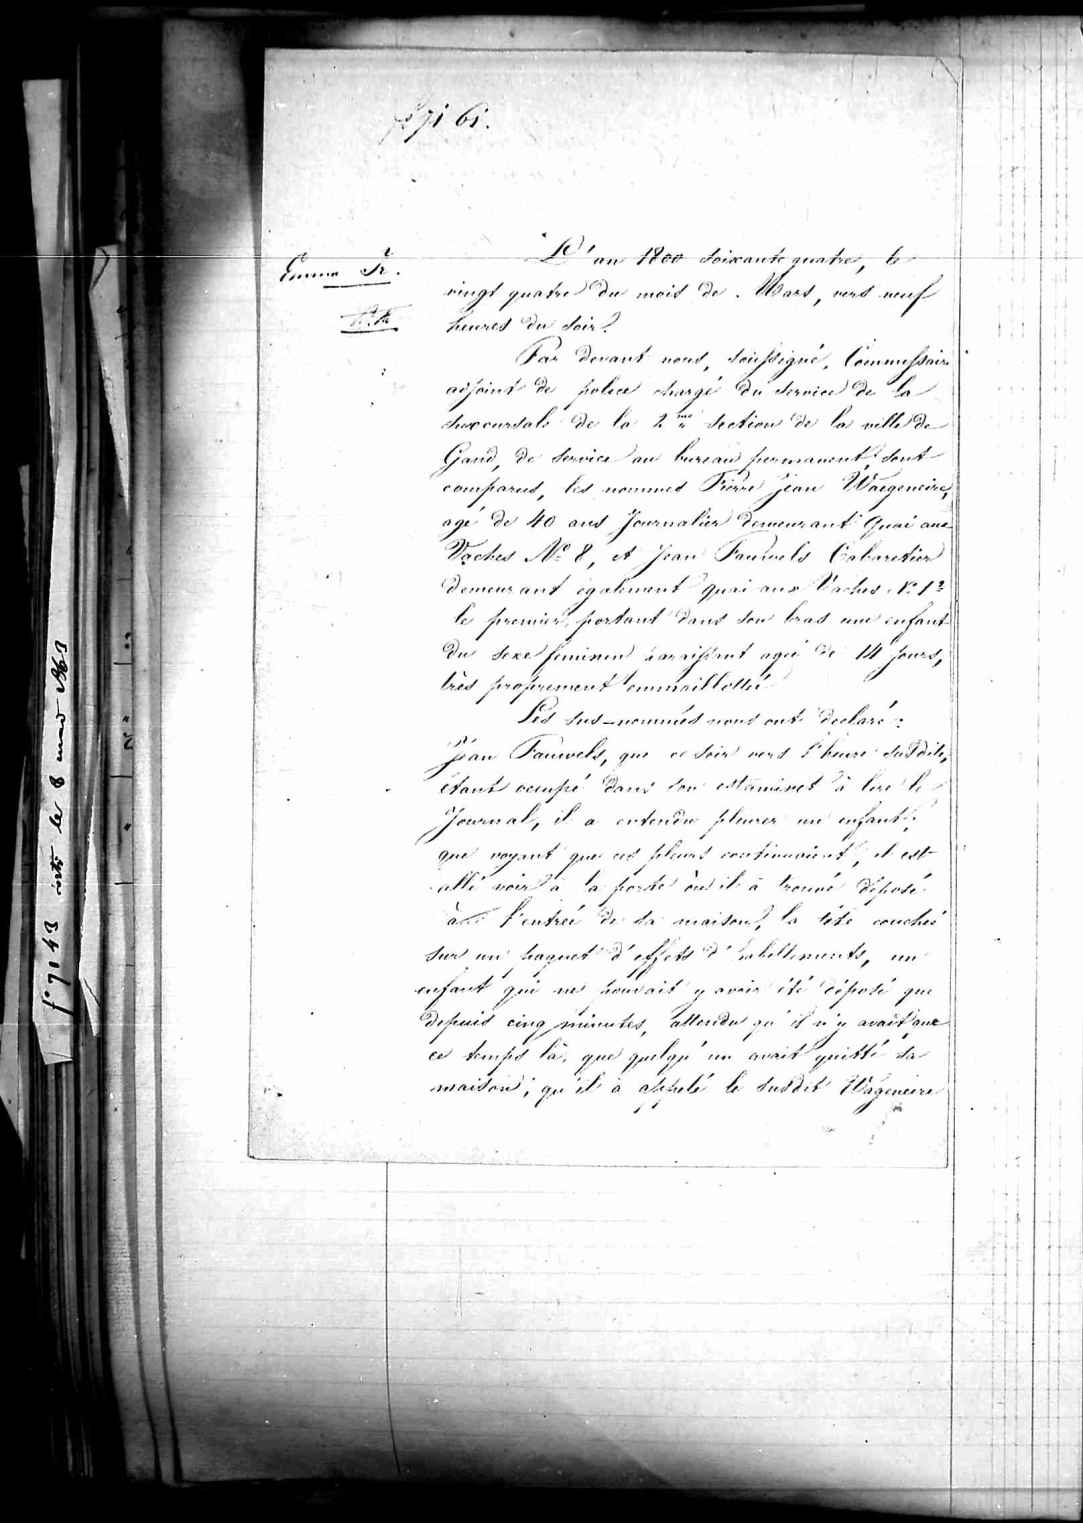 fo 7161.
Emma Fr.
L'an 1800 soixante quatre, le
vingt quatre du mois de Mars, vers neuf
heures du soir.
Par devant nous, soussigné, Commissaire
adjoint de police chargé du service de la
succursale de la 2me section de la ville de
Gand, de service au bureau permanent, sont
comparus, les nommés Pierre Jean Waegeneire,
agé de 40 ans Journalier demeurant Quai aux
Vaches No 8, et Jean Fauwels Cabaretier
demeurant également quai aux Vaches No 12
le premier, portant dans son bras une enfant
du sexe feminin paraissant agé de 14 jours,
très proprement emmaillotté
Les sus-nommés nous ont declaré:
Jean Fauwels, que ce soir vers l'heure susdite,
étant occupé dans son estaminet à lire le
Journal, il a entendu pleurer un enfant;
que voyant que ces pleurs continuaient, il est
allé voir à la porte où il à trouvé déposé
à l'entrée de sa maison, la tête couché
sur un paquet d'effets d'habillements, un
enfant qui ne pouvait y avoir été déposé que
depuis cinq minutes, attendu qu'il n'y avait que
ce temps là, que quelqu'un avait quitté sa
maison; qu'il à appelé le susdit Wageneire
fo 7143 le 8 mars